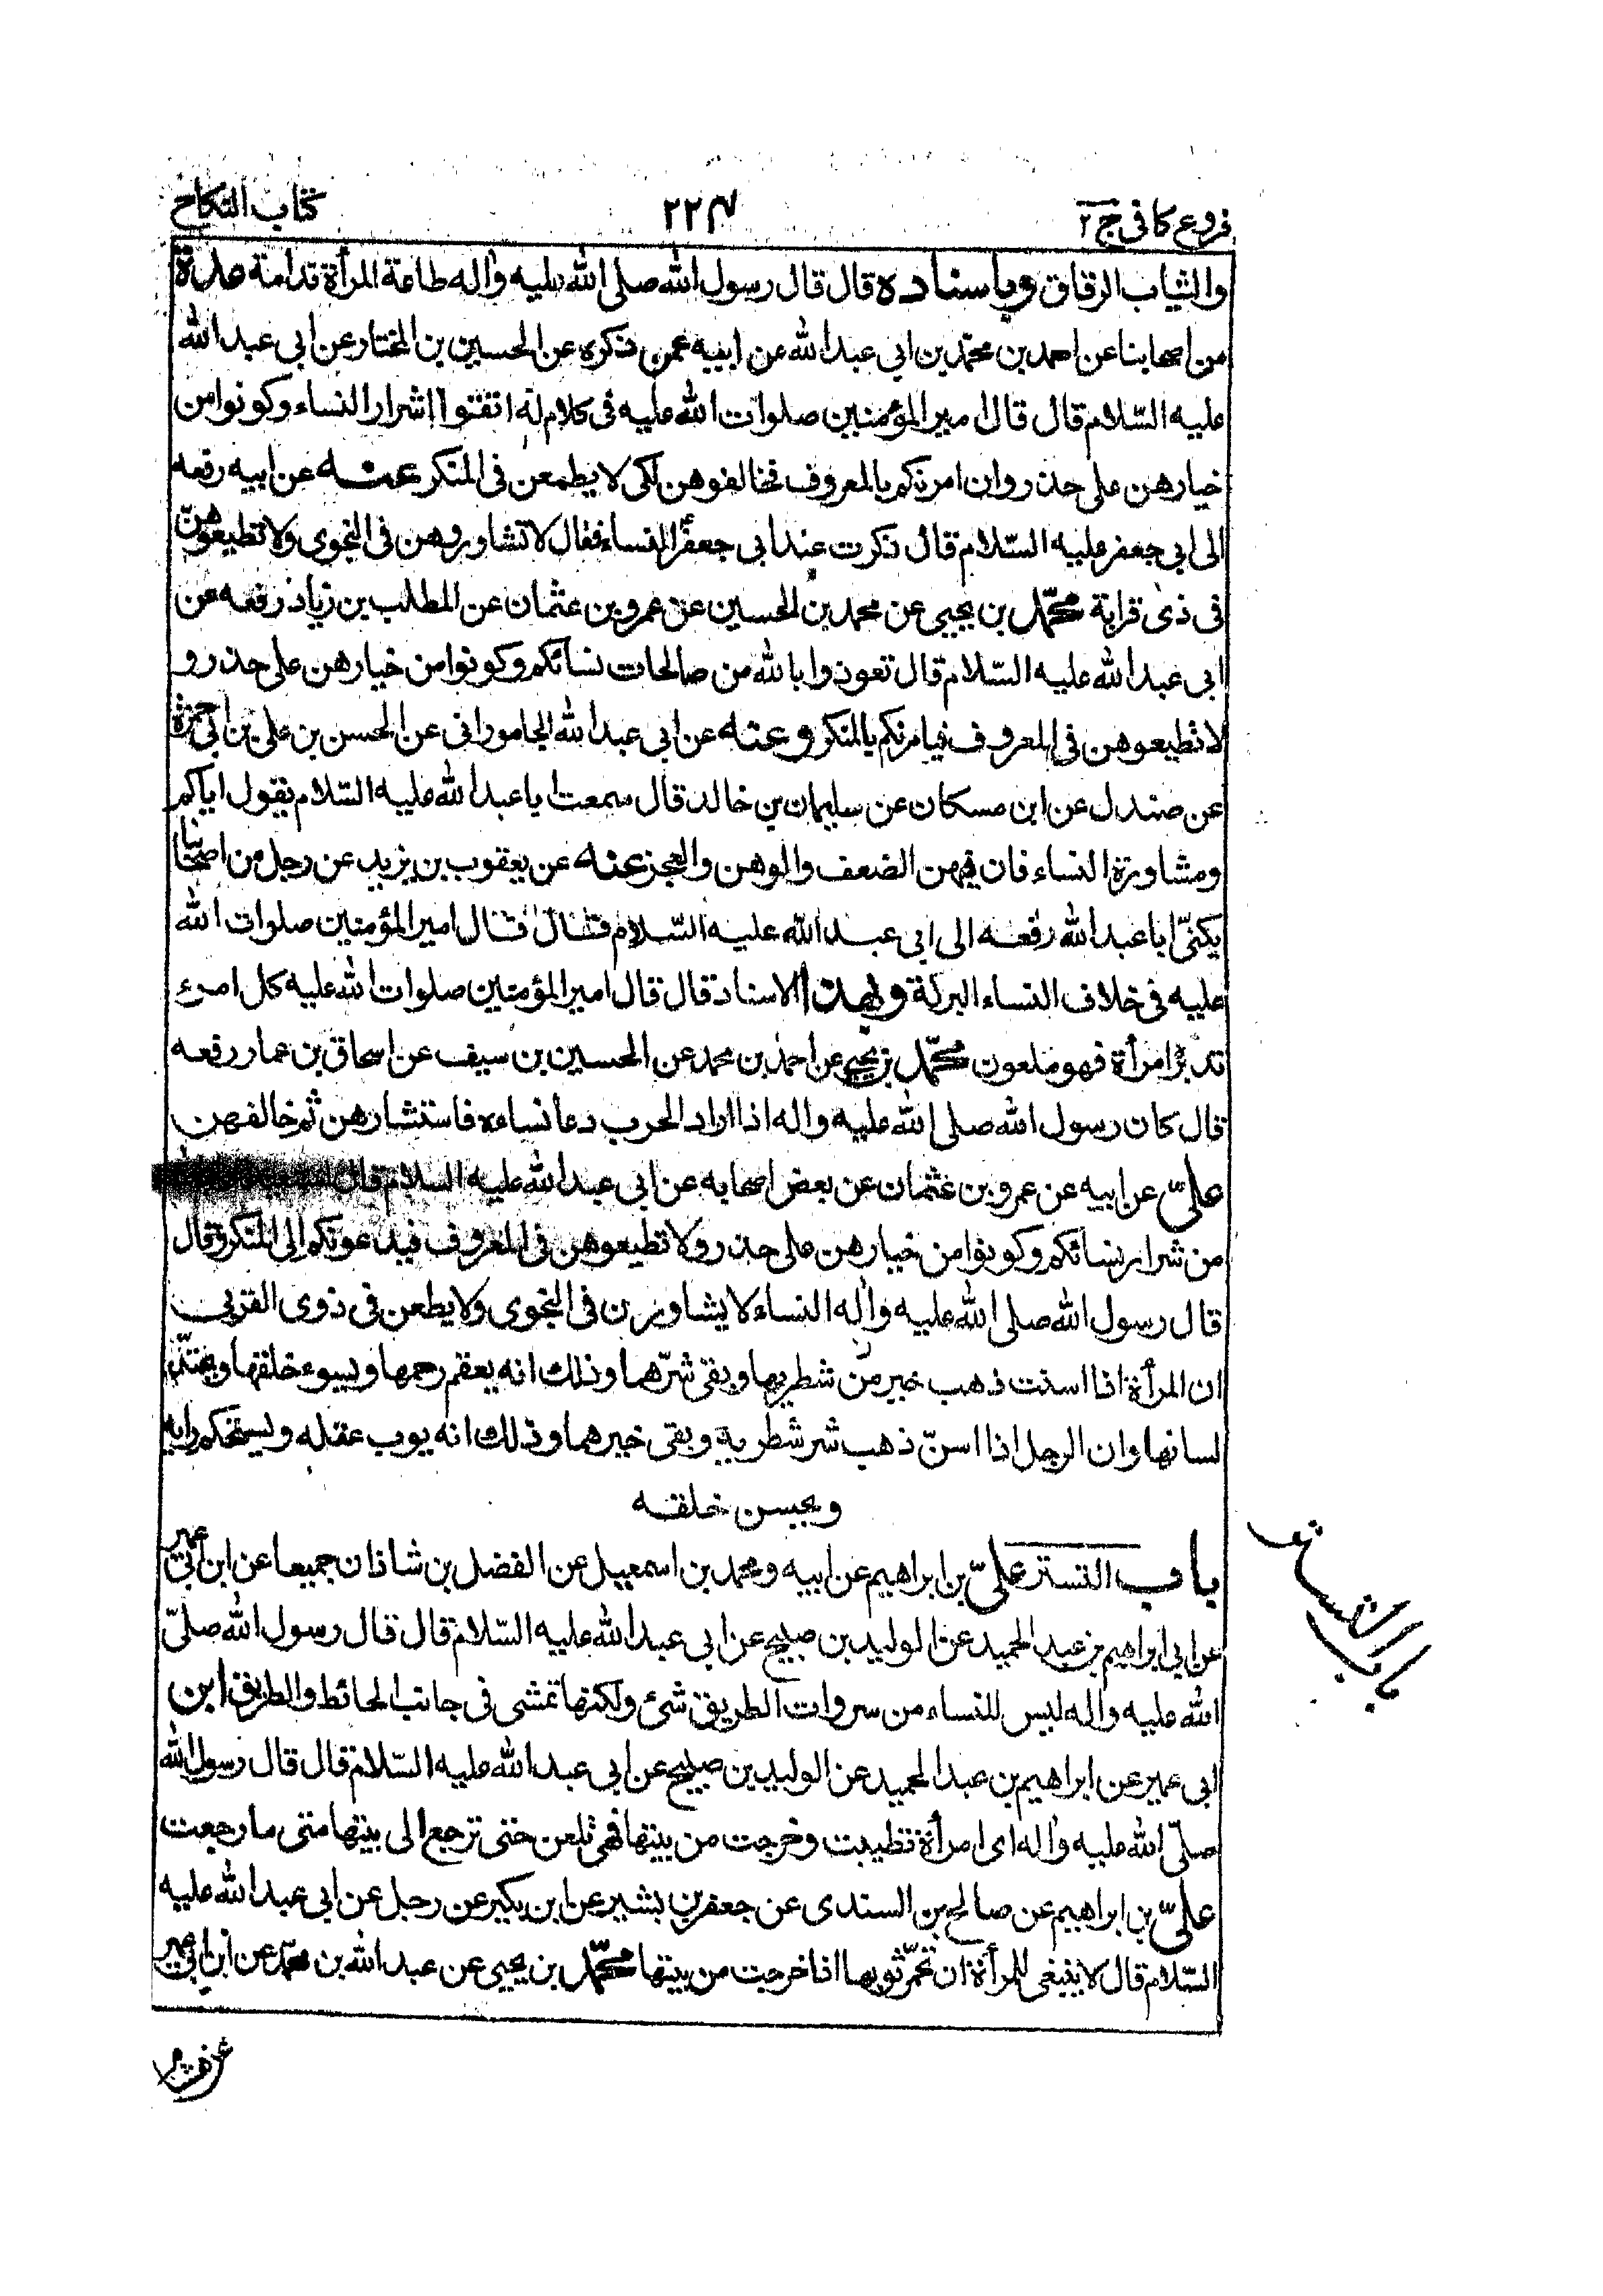 فروع كافى ج ٢
٢٢٤
كتاب النكاح
والثياب الرقاق وباسناده قال قال رسول الله صلى الله عليه واله طاعة المرأة ندامة عدة
من اصحابنا عن احمد بن محمد بن ابي عبد الله عن ابيه عمن ذكره عن الحسين بن المختار عن ابي عبد الله
عليه السّلام قال قال امير المؤمنين صلوات الله عليه فى كلام له اتقوا اشرار النساء وكونوا من
خيارهن على حذر وان امرنكم بالمعروف فخالفوهن لكى لا يطمعن فى المنكر عنه عن ابيه رفعه
الى ابي جعفر عليه السّلام قال ذكرت عند ابى جعفر النساء فقال لا تشاوروهن فى النجوى ولا تطيعوهنّ
فى ذى قرابة محمّد بن يحيى عن محمد بن الحسين عن عمرو بن عثمان عن المطلب بن زياد رفعه عن
ابى عبد الله عليه السّلام قال تعوذوا بالله من صالحات نسائكم وكونوا من خيارهن على حذر و
لا تطيعوهن فى المعروف فيامرنكم بالمنكر وعنه عن ابى عبد الله الجامورانى عن الحسن بن على بن ابي حمزة
عن صندل عن ابن مسكان عن سليمان بن خالد قال سمعت ابا عبد الله عليه السّلام يقول اياكم
ومشاورة النساء فان فيهن الضعف والوهن والعجز عنه عن يعقوب بن يزيد عن رجل من اصحابنا
يكنّى ابا عبد الله رفعه الى ابى عبد الله عليه السّلام قال قال امير المؤمنين صلوات الله
عليه فى خلاف النساء البركة وبهذا الاسناد قال قال امير المؤمنين صلوات الله عليه كل امرء
تدبره امرأة فهو ملعون محمّد بن يحيى عن احمد بن محمد عن الحسين بن سيف عن اسحاق بن عمار رفعه
قال كان رسول الله صلى الله عليه واله اذا اراد الحرب دعا نساءه فاستشارهن ثم خالفهن
علىّ عن ابيه عن عمرو بن عثمان عن بعض اصحابه عن ابى عبد الله عليه السلام قال
من شرار نسائكم وكونوا من خيارهن على حذر ولا تطيعوهن فى المعروف فيدعونكم الى المنكر وقال
قال رسول الله صلى الله عليه واله النساء لا يشاورن فى النجوى ولا يطعن فى ذوى القربى
ان المرأة اذا اسنت ذهب خير من شطريها وبقى شرّهما وذلك انه يعقم رحمها ويسوء خلقها ويحتدّ
لسانها وان الرجل اذا اسنّ ذهب شر شطريه وبقى خيرهما وذلك انه يوب عقله ويستحكم رايه
ويحسن خلقه
باب التستر علىّ بن ابراهيم عن ابيه ومحمد بن اسمعيل عن الفضل بن شاذان جميعا عن ابن ابي عمير
عن ابى ابراهيم بن عبد الحميد عن الوليد بن صبيح عن ابى عبد الله عليه السّلام قال قال رسول الله صلىّ
الله عليه واله ليس للنساء من سروات الطريق شئ ولكنها تمشى فى جانب الحائط والطريق ابن
ابى عمير عن ابراهيم بن عبد الحميد عن الوليد بن صبيح عن ابى عبد الله عليه السّلام قال قال رسول الله
صلىّ الله عليه واله اى امرأة تطيبت وخرجت من بيتها فهى تلعن حتى ترجع الى بيتها متى ما رجعت
علىّ بن ابراهيم عن صالح بن السندى عن جعفر بن بشير عن ابن بكير عن رجل عن ابى عبد الله عليه
السّلام قال لا ينبغى للمرأة ان تجمّر ثوبها اذا خرجت من بيتها محمّد بن يحيى عن عبد الله بن محمّد عن ابن ابي عمير
باب التستر